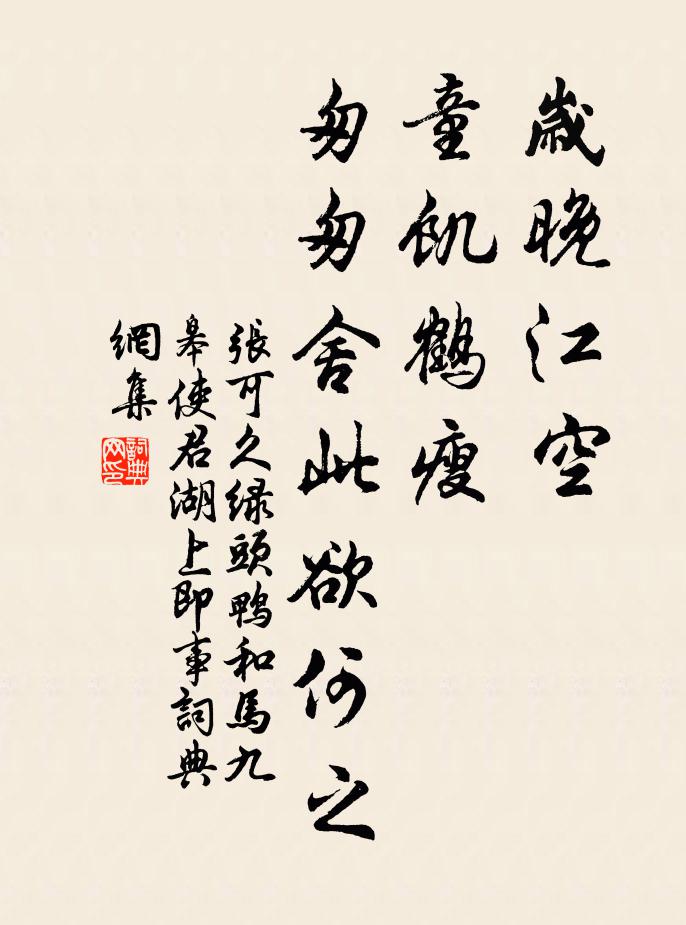 歲晚江空
童飢鶴瘦
匆匆舍此欲何之
張可久綠頭鴨和馬九
皋使君湖上即事詞典
網集
詞典
网印